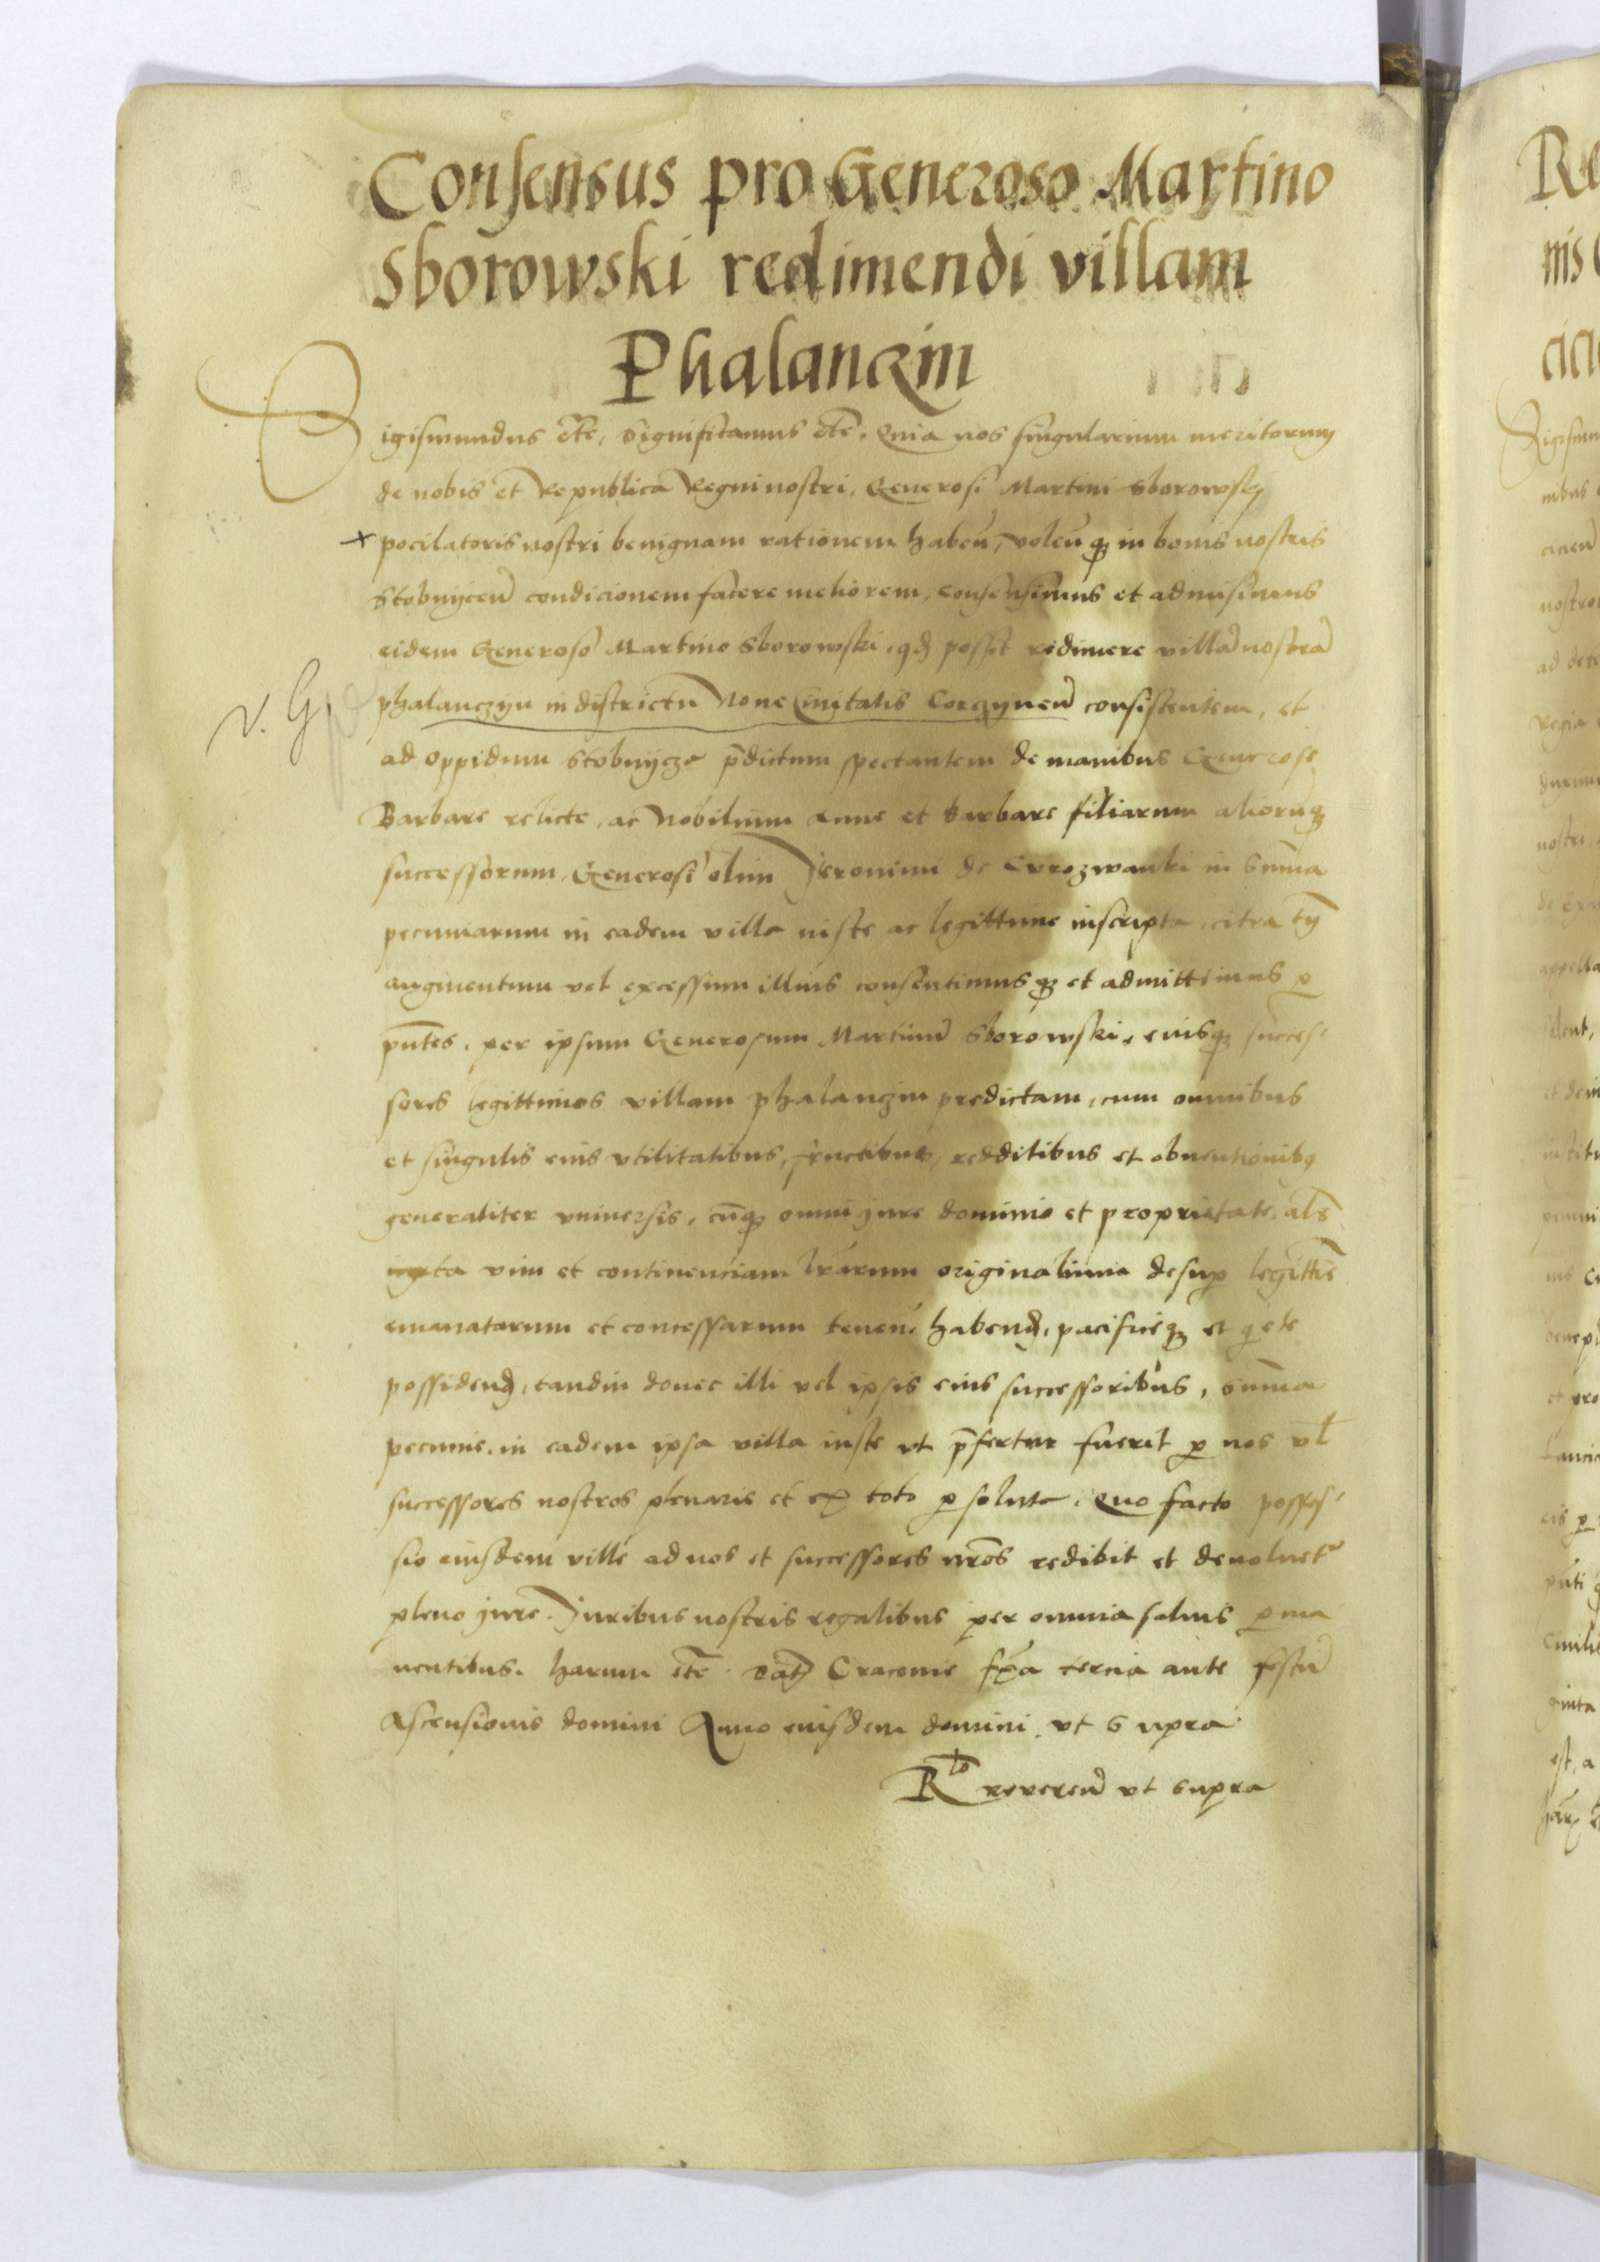 Consensus pro Generoso Martino
Sborowski redimendi villam
Phalanczin
Sigismundus etc̃. Significamus etc̃. Quia nos singularium meritorum
de nobis et Republica Regni nostri, Generosi Martini Sborowskij
+ pocilatoris nostri benignam rationem habeñ, voleñq̃ in bonis nostris
Stobnijceñ condicionem facere meliorem, consensimus et admisimus
eidem Generoso Martino Sborowski, qđ possit redimere villã nostrã
v. G phalanczyn in districtu None Ciuitatis Corczyneñ consistentem, et
ad oppidum Stobnijcze p̃dictum spectantem de manibus Generose
Barbare relicte, ac Nobilium Anne et Barbare filiarum aliorũq̃
successorum, Generosi olim Jeronimi de in Sum̃a
pecuniarum in eadem villa iuste ac legittime inscripta, citra tñ
augmentum vel excessum illius consentimusq̃ et admittimus p
pñtes, per ipsum Generosum Martinũ Sborowski, eiusq̃ succes-
sores legittimos villam phalanczin predictam, cum omnibus
et singulis eius vtilitatibus, fructibus, redditibus et obuentionibq
generaliter vniuersis, cũq̃ omni jure dominio et proprietate, als̃
iuxta vim et continenciam lr̃arum originalium desup legittĩe
emanatarum et concessarum teneñ. habenđ, pacificeq̃ et qiete
possidenđ, tandiu donec illi vel ipsis eius successoribus, Sum̃a
pecunie, in eadem ipsa villa iuste vt p̃fertur fuerit p nos vł
successores nostros plenarie et ex toto psoluta. Quo facto posses-
sio eiusdem ville ad nos et successores nr̃os redibit et deuoluet̃
pleno jure. Juribus nostris regalibus per omnia saluis pma
nentibus. harum etc̃. Dat̃ Cracouie fẽa tercia ante festũ
Ascensionis domini Anno eiusdem domini vt Supra
Rlo reuereñ vt supra